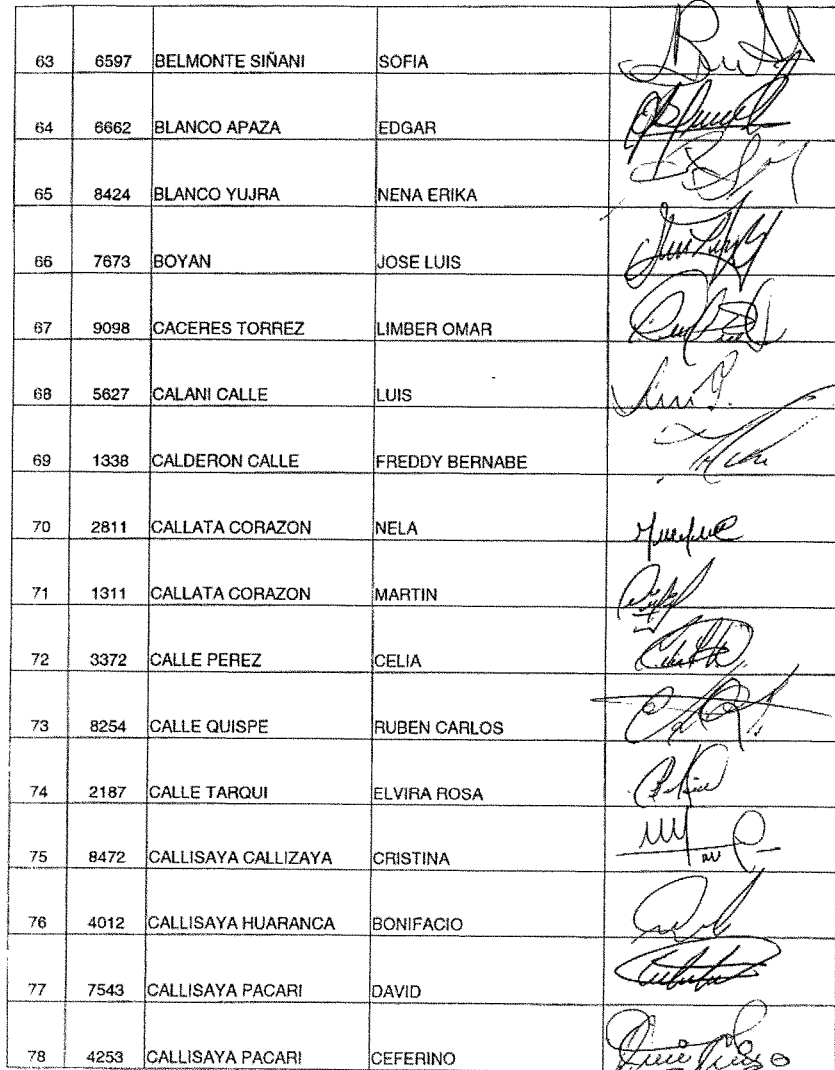 63 6597 BELMONTE SIÑANI SOFIA
64 6662 BLANCO APAZA EDGAR
65 8424 BLANCO YUJRA NENA ERIKA
66 7673 BOYAN JOSE LUIS
67 9098 CACERES TORREZ LIMBER OMAR
68 5627 CALANI CALLE LUIS
69 1338 CALDERON CALLE FREDDY BERNABE
70 2811 CALLATA CORAZON NELA
71 1311 CALLATA CORAZON MARTIN
72 3372 CALLE PEREZ CELIA
73 8254 CALLE QUISPE RUBEN CARLOS
74 2187 CALLE TARQUI ELVIRA ROSA
75 8472 CALLISAYA CALLIZAYA CRISTINA
76 4012 CALLISAYA HUARANCA BONIFACIO
77 7543 CALLISAYA PACARI DAVID
78 4253 CALLISAYA PACARI CEFERINO